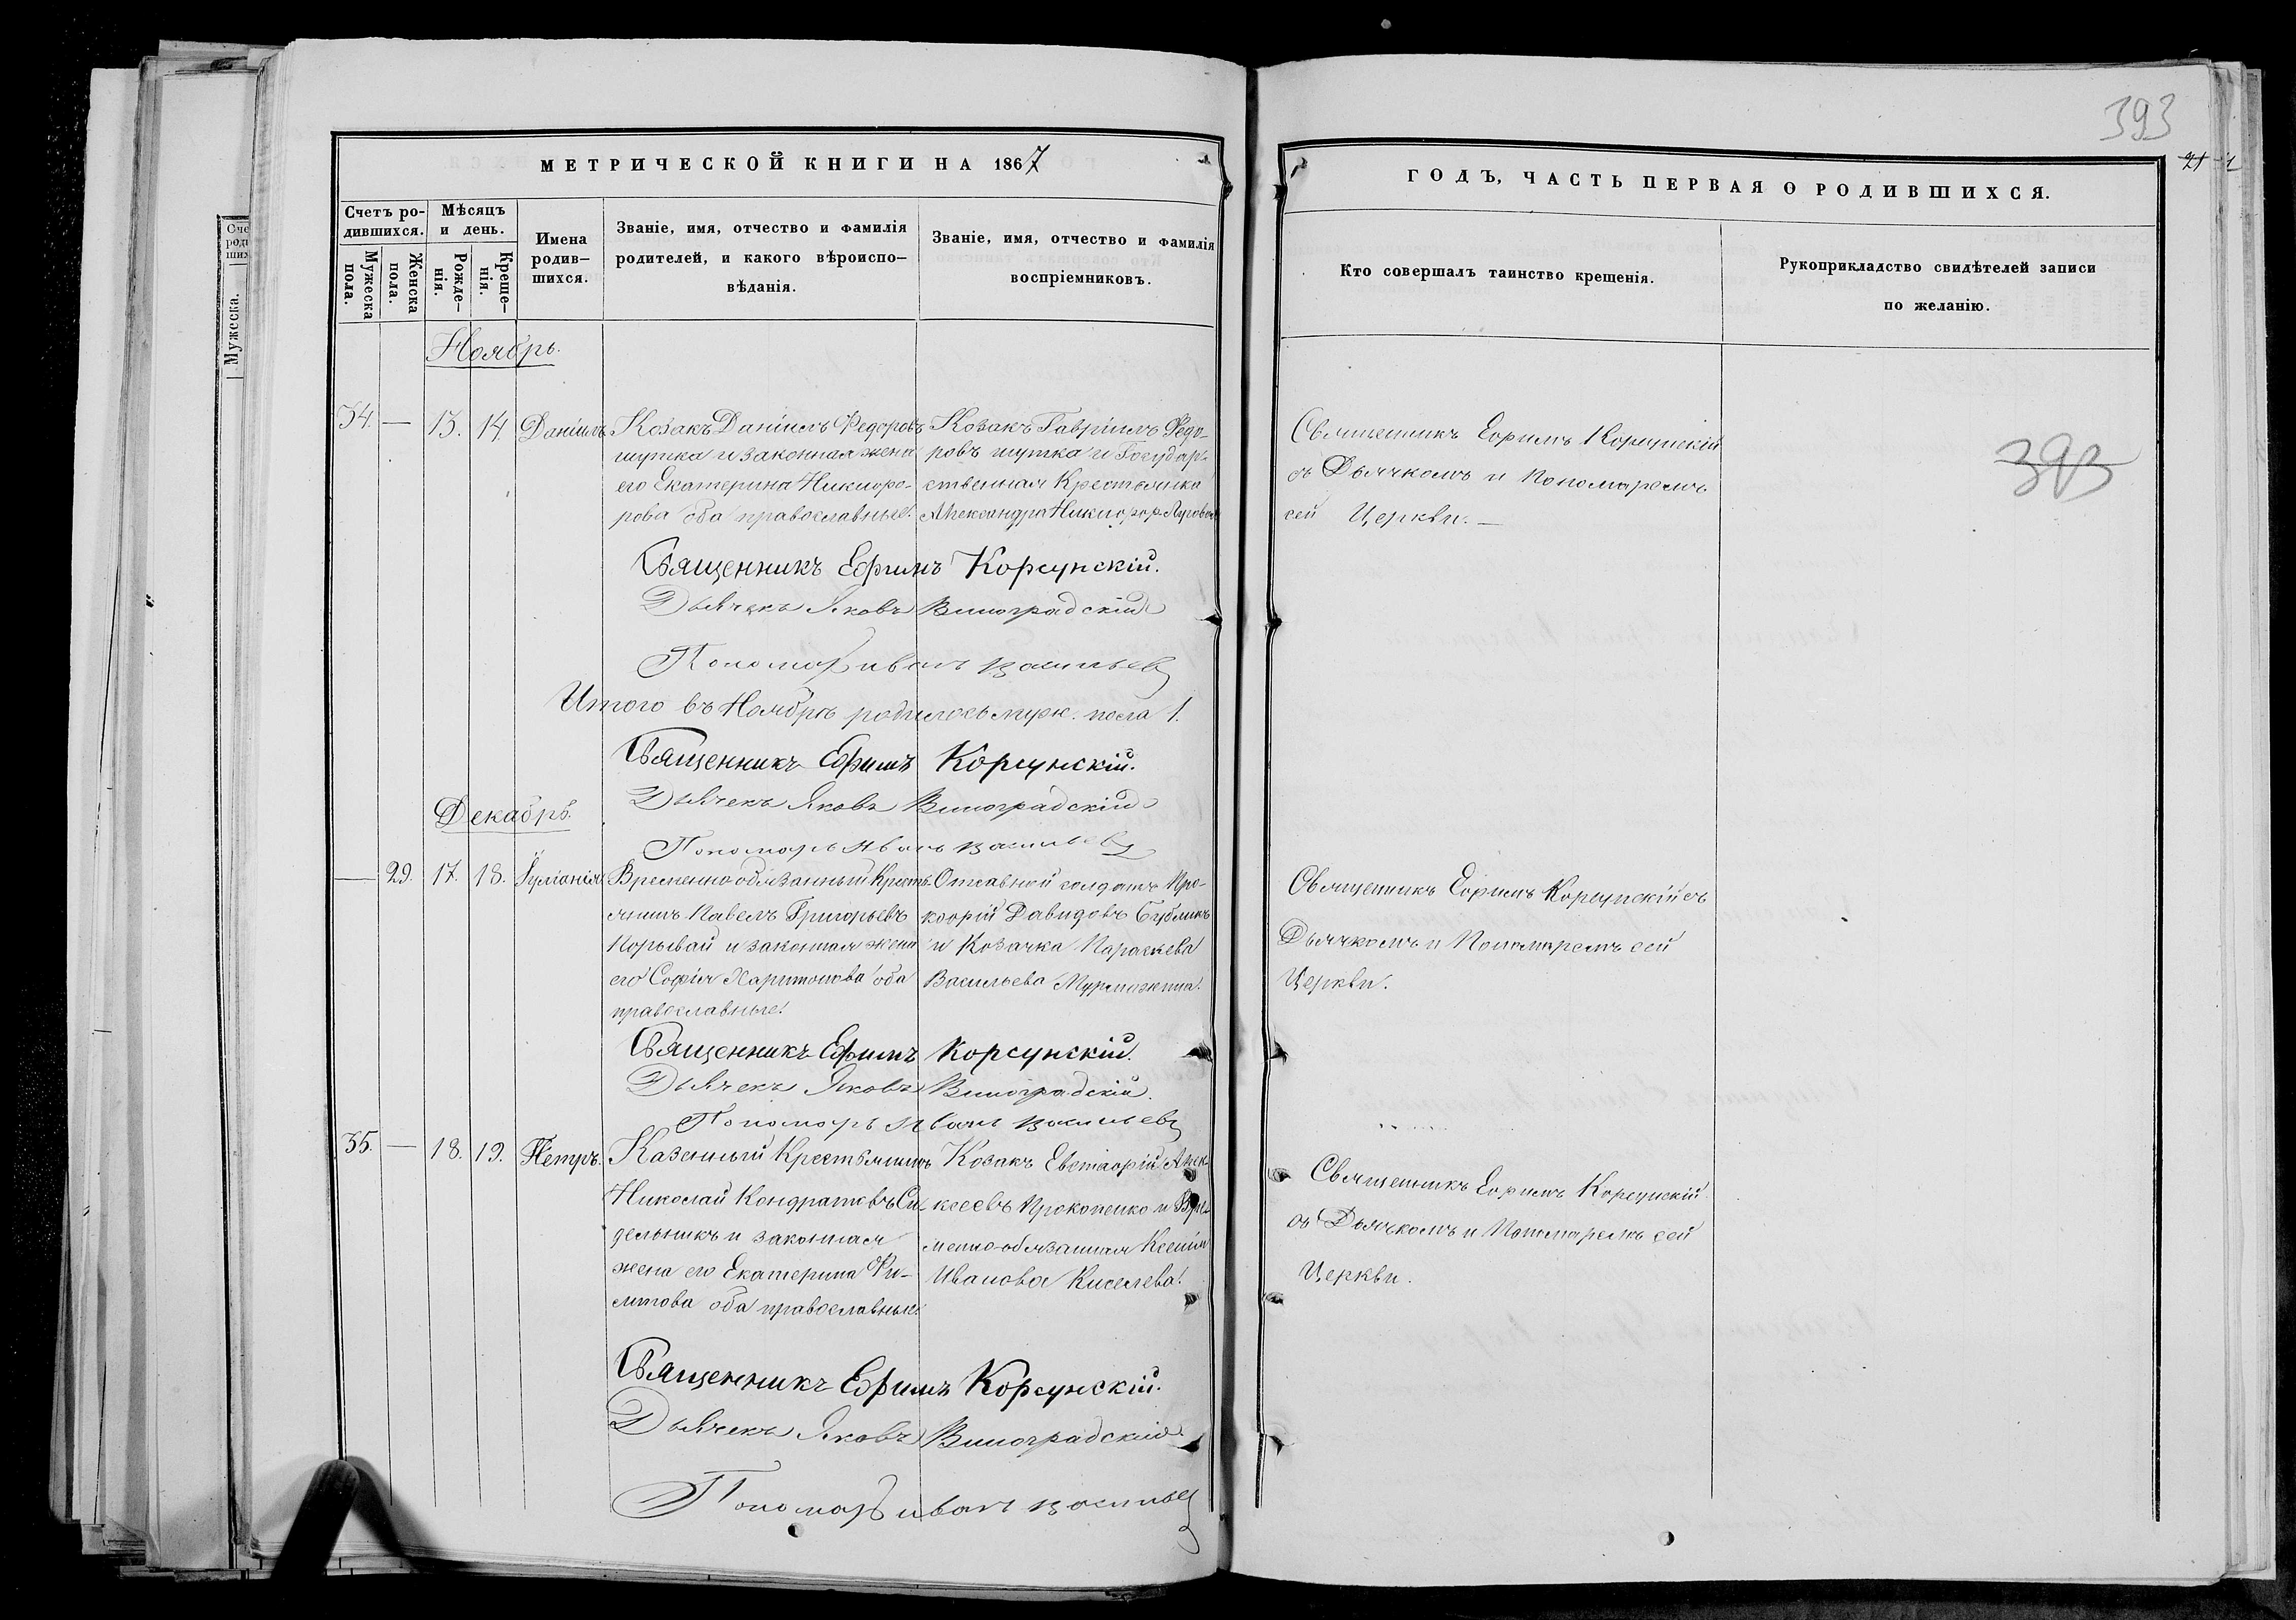 393
21
МЕТРИЧЕСКОЙ КНИГИ НА 1867
ГОДЪ, ЧАСТЬ ПЕРВАЯ О РОДИВШИХСЯ.
Счетъ ро-
дившихся.
Мужеска
пола.
Женска
пола.
Мѣсяцъ
и день.
Рожде-
нія.
Креще-
нія.
Имена
родив-
шихся.
Званіе, имя, отчество и фамилія
родителей, и какого вѣроиспо-
вѣданія.
Званіе, имя, отчество и фамилія
воспріемниковъ.
Кто совершалъ таинство крещенія.
Рукоприкладство свидѣтелей записи
по желанію.
Мужеска.
Ноябрь.
34. — 13. 14. Даніилъ
Козакъ Даніилъ Федоровъ
шутка и законная жена
его Екатерина Никифо-
рова оба православные.
Козакъ Гавріилъ Федо-
ровъ шутка и Государ-
ственная Крестьянка
Александра Никифор.
Священникъ Ефимъ Корсунскій
съ Дьячкомъ и Пономаремъ
сей Церкви. —
393
Священникъ Ефимъ Корсунскій.
Дьячекъ Яковъ Виноградскій
Пономарь иванъ васильевъ
Итого въ Ноябрѣ родилось муж. пола 1.
Священникъ Ефимъ Корсунскій.
Дьячекъ Яковъ Виноградскій
Декабрь.
Пономарь иванъ васильевъ
— 29. 17. 18. Іуліанія
Временно обязанный Кресть-
янинъ Павелъ Григорьевъ
Порывай и законная жена
его Софія Харитонова оба
православные.
Отставной солдатъ Про-
кофій Давидовъ Бубликъ
и Козачка Параскева
Васильева
Священникъ Ефимъ Корсунскій съ
Дьячкомъ и Пономаремъ сей
Церкви.
Священникъ Ефимъ Корсунскій.
Дьячекъ Яковъ Виноградскій.
Пономарь иванъ васильевъ
35. — 18. 19. Петръ.
Казенный Крестьянинъ
Николай Кондратьевъ Си-
дельникъ и законная
жена его Екатерина Фи-
липова оба православные.
Козакъ Евстафій Алек-
сеевъ Прокопенко и Вре-
менно-обязанная Ксенія
Иванова Киселева.
Священникъ Ефимъ Корсунскій
съ Дьячкомъ и Пономаремъ сей
Церкви.
Священникъ Ефимъ Корсунскій.
Дьячекъ Яковъ Виноградскій
Пономарь иванъ васильевъ